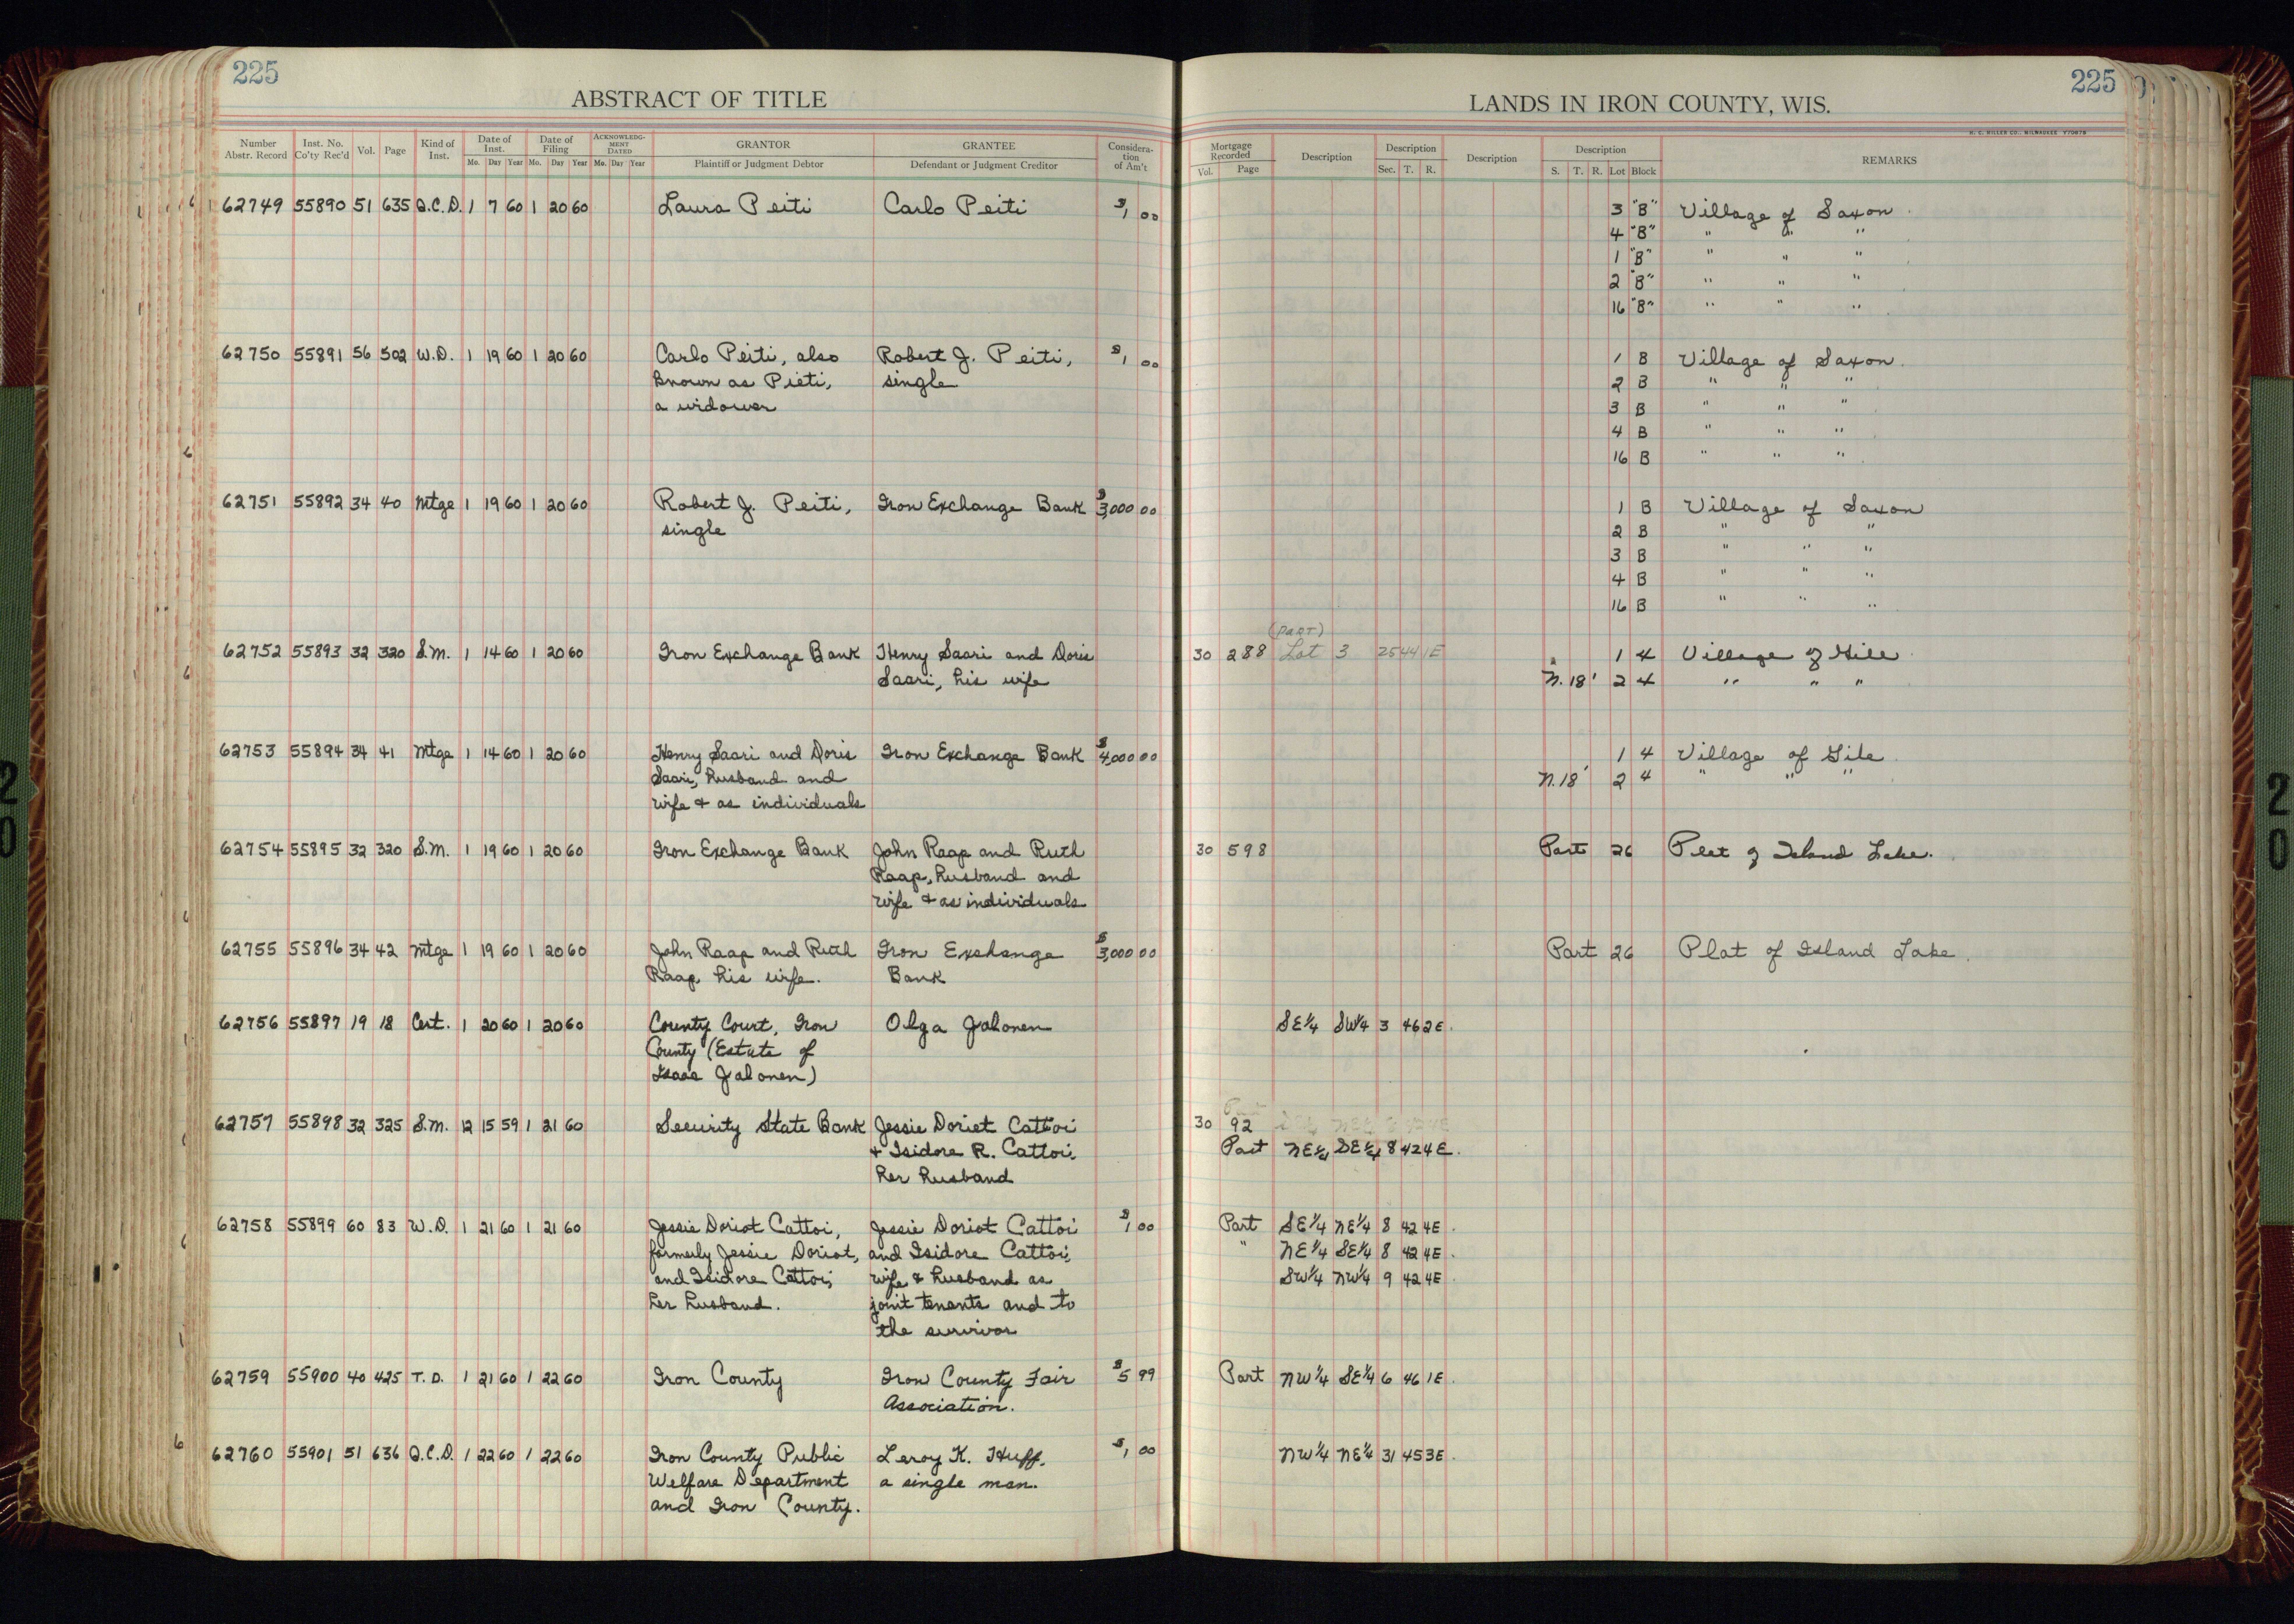 225
ABSTRACT OF TITLE
Number Abstr. Record | Inst. No. Co'ty Rec'd | Vol. | Page | Kind of Inst. | Date of Inst. Mo. Day Year | Date of Filing Mo. Day Year | ACKNOWLEDGMENT DATED Mo. Day Year | GRANTOR Plaintiff or Judgment Debtor | GRANTEE Defendant or Judgment Creditor | Consideration of Am't
62749 55890 51 635 Q.C.D. 1 7 60 1 20 60 Laura Peiti Carlo Peiti $1,00
62750 55891 56 502 W.D. 1 19 60 1 20 60 Carlo Peiti, also Robert J. Peiti, $1,00
known as Pieti, single
a widower
62751 55892 34 40 Mtge 1 19 60 1 20 60 Robert J. Peiti, Iron Exchange Bank $3,000 00
single
62752 55893 32 320 S.M. 1 14 60 1 20 60 Iron Exchange Bank Henry Saari and Doris
Saari, his wife
62753 55894 34 41 Mtge 1 14 60 1 20 60 Henry Saari and Doris Iron Exchange Bank $4,000 00
Saari, husband and
wife & as individuals
62754 55895 32 320 S.M. 1 19 60 1 20 60 Iron Exchange Bank John Raap and Ruth
Raap, husband and
wife & as individuals
62755 55896 34 42 Mtge 1 19 60 1 20 60 John Raap and Ruth Iron Exchange $3,000 00
Raap his wife. Bank
62756 55897 19 18 Cert. 1 20 60 1 20 60 County Court, Iron Olga Jalonen
County (Estate of
Isaac Jalonen)
62757 55898 32 325 S.M. 12 15 59 1 21 60 Security State Bank Jessie Doriet Cattoi
& Isidore R. Cattoi,
her husband
62758 55899 60 83 W.D. 1 21 60 1 21 60 Jessie Doriot Cattoi, Jessie Doriot Cattoi $1 00
formerly Jessie Doriot, and Isidore Cattoi,
and Isidore Cattoi, wife & husband as
her husband. joint tenants and to
the survivor
62759 55900 40 425 T.D. 1 21 60 1 22 60 Iron County Iron County Fair $5 99
Association.
62760 55901 51 636 Q.C.D. 1 22 60 1 22 60 Iron County Public Leroy K. Huff, $1,00
Welfare Department a single man.
and Iron County.
225
LANDS IN IRON COUNTY, WIS.
H. C. MILLER CO., MILWAUKEE
Mortgage Recorded Vol. Page | Description | Description Sec. T. R. | Description | Description S. T. R. Lot Block | REMARKS
3 "B" Village of Saxon
4 "B" " " "
1 "B" " " "
2 "B" " " "
16 "B" " " "
1 B Village of Saxon
2 B " " "
3 B " " "
4 B " " "
16 B " " "
1 B Village of Saxon
2 B " "
3 B " " "
4 B " " "
16 B " " "
(PART)
30 288 Lot 3 25 44 1E 1 4 Village of Gile
N.18' 2 4 " " "
1 4 Village of Gile
N.18' 2 4 " " "
30 598 Part 26 Plat of Island Lake.
Part 26 Plat of Island Lake.
SE¼ SW¼ 3 46 2E.
30 92
Part NE¼ SE¼ 8 42 4E.
Part SE¼ NE¼ 8 42 4E.
" NE¼ SE¼ 8 42 4E.
SW¼ NW¼ 9 42 4E.
Part NW¼ SE¼ 6 46 1E.
NW¼ NE¼ 31 45 3E.
20
20